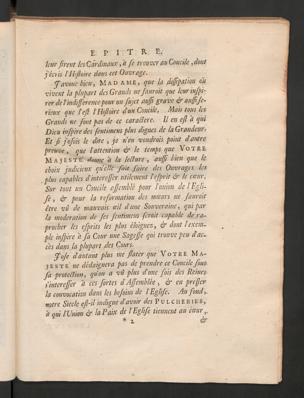 EPITRE.
leur firent les Cardinaux, à se trouver au Concile, dont
j'écris l'Histoire dans cet Ouvrage.
J'avouë bien, MADAME, que la dissipation où
vivent la plupart des Grands ne sauroit que leur inspi-
rer de l'indifference pour un sujet aussi grave & aussi se-
rieux que l'est l'Histoire d'un Concile. Mais tous les
Grands ne sont pas de ce caractere. Il en est à qui
Dieu inspire des sentimens plus dignes de la Grandeur.
Et si j'osois le dire, je n'en voudrois point d'autre
preuve, que l'attention & le temps que VOTRE
MAJESTÉ donne à la lecture, aussi bien que le
choix judicieux qu'elle sait faire des Ouvrages les
plus capables d'interesser utilement l'esprit & le cœur.
Sur tout un Concile assemblé pour l'union de l'Egli-
se, & pour la reformation des mœurs ne sauroit
être vû de mauvais œil d'une Souveraine, qui par
la moderation de ses sentimens seroit capable de ra-
procher les esprits les plus éloignez, & dont l'exem-
ple inspire à sa Cour une Sagesse qui trouve peu d'ac-
cès dans la plupart des Cours.
J'ose d'autant plus me flater que VOTRE MA-
JESTÉ ne dédaignera pas de prendre ce Concile sous
sa protection, qu'on a vû plus d'une fois des Reines
s'interesser à ces sortes d'Assemblée, & en presser
la convocation dans les besoins de l'Eglise. Au fond,
nôtre Siecle est-il indigne d'avoir des PULCHERIES,
à qui l'Union & la Paix de l'Eglise tiennent au cœur,
* 2 &